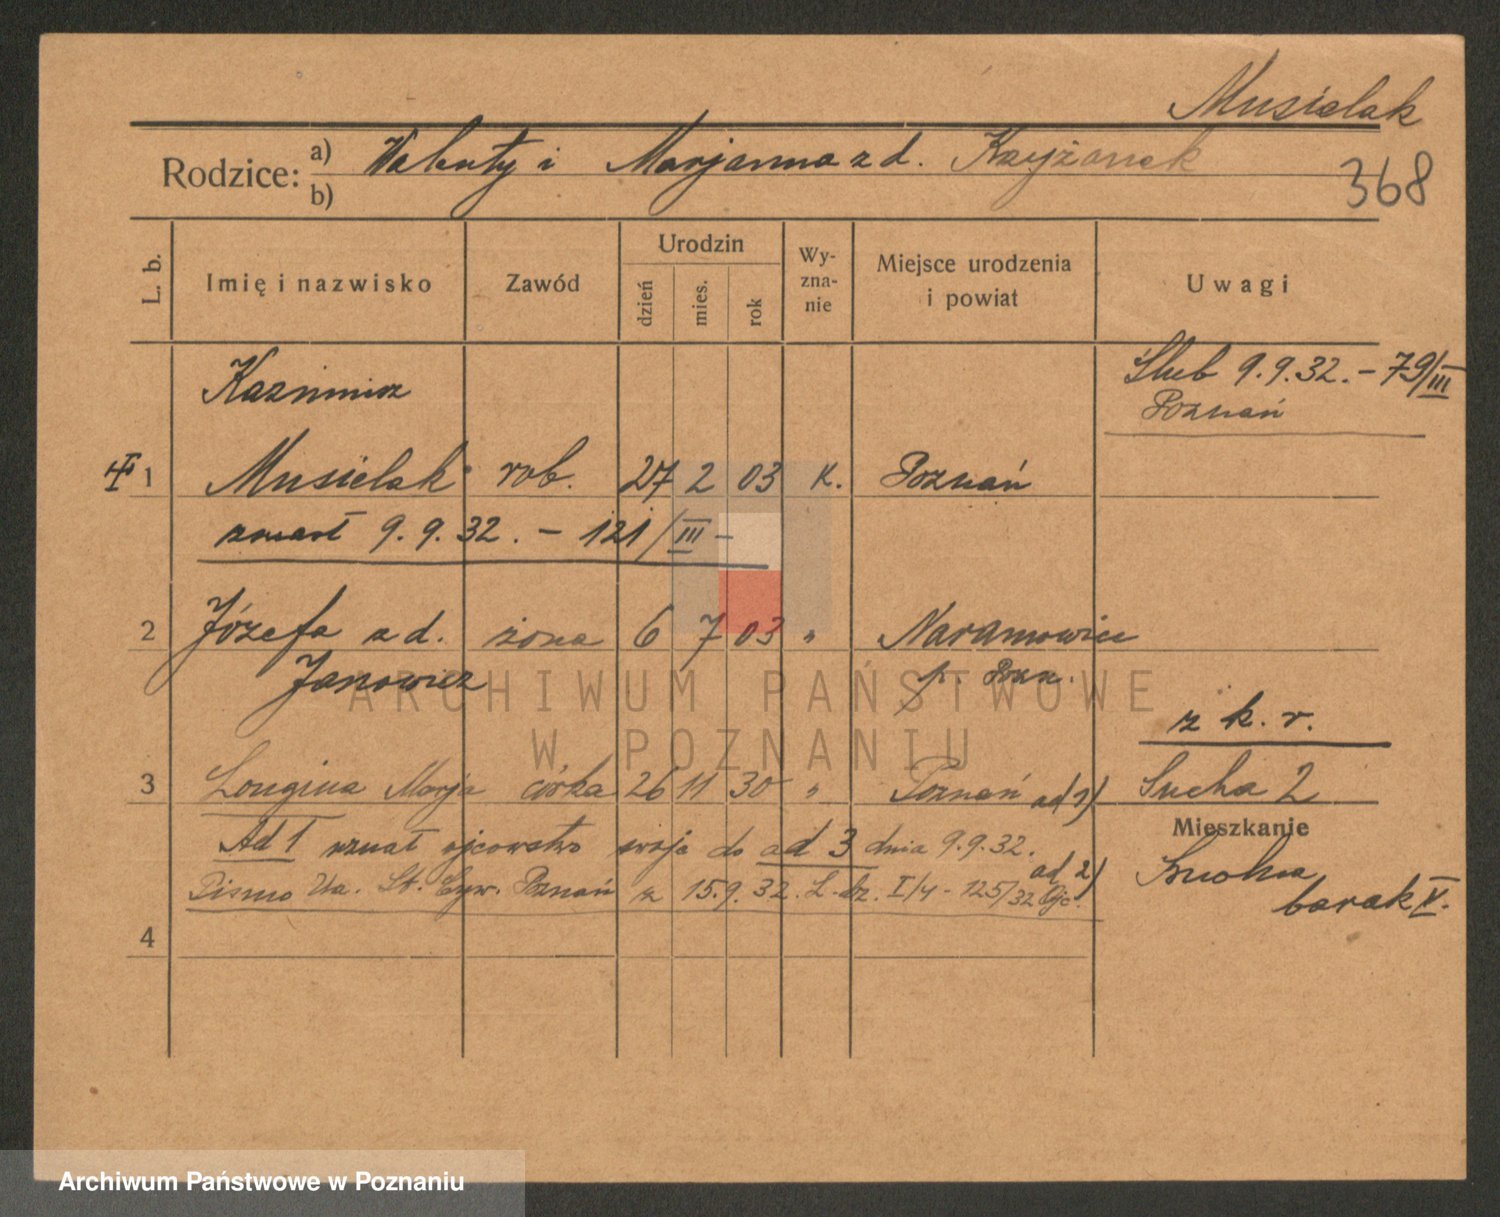 Musielak
368
Rodzice: a) Walenty i Marjanna z d. Krzyżaniak
b)
L. b. Imię i nazwisko Zawód Urodzin dzień mies. rok Wy-zna-nie Miejsce urodzenia i powiat Uwagi
Kazimierz
Ślub 9.9.32. – 79/III
Poznań
1 Musielak rob. 27 2 03 k. Poznań
zmarł 9.9.32. – 121/III –
2 Józefa z d. żona 6 7 03 " Naramowice
Janowicz p. Pozn.
z k. r.
3 Longina Marja córka 26 11 30 " Poznań ad 1) Sucha 2
Mieszkanie
Ad 1 uznał ojcowstwo swoje do ad 3 dnia 9.9.32.
ad 2) Suche
Pismo Urz. St. Cyw. Poznań z 15.9.32. L. dz. I/4 – 125/32 Ojc.
barak V.
4
ARCHIWUM PAŃSTWOWE
W POZNANIU
Archiwum Państwowe w Poznaniu